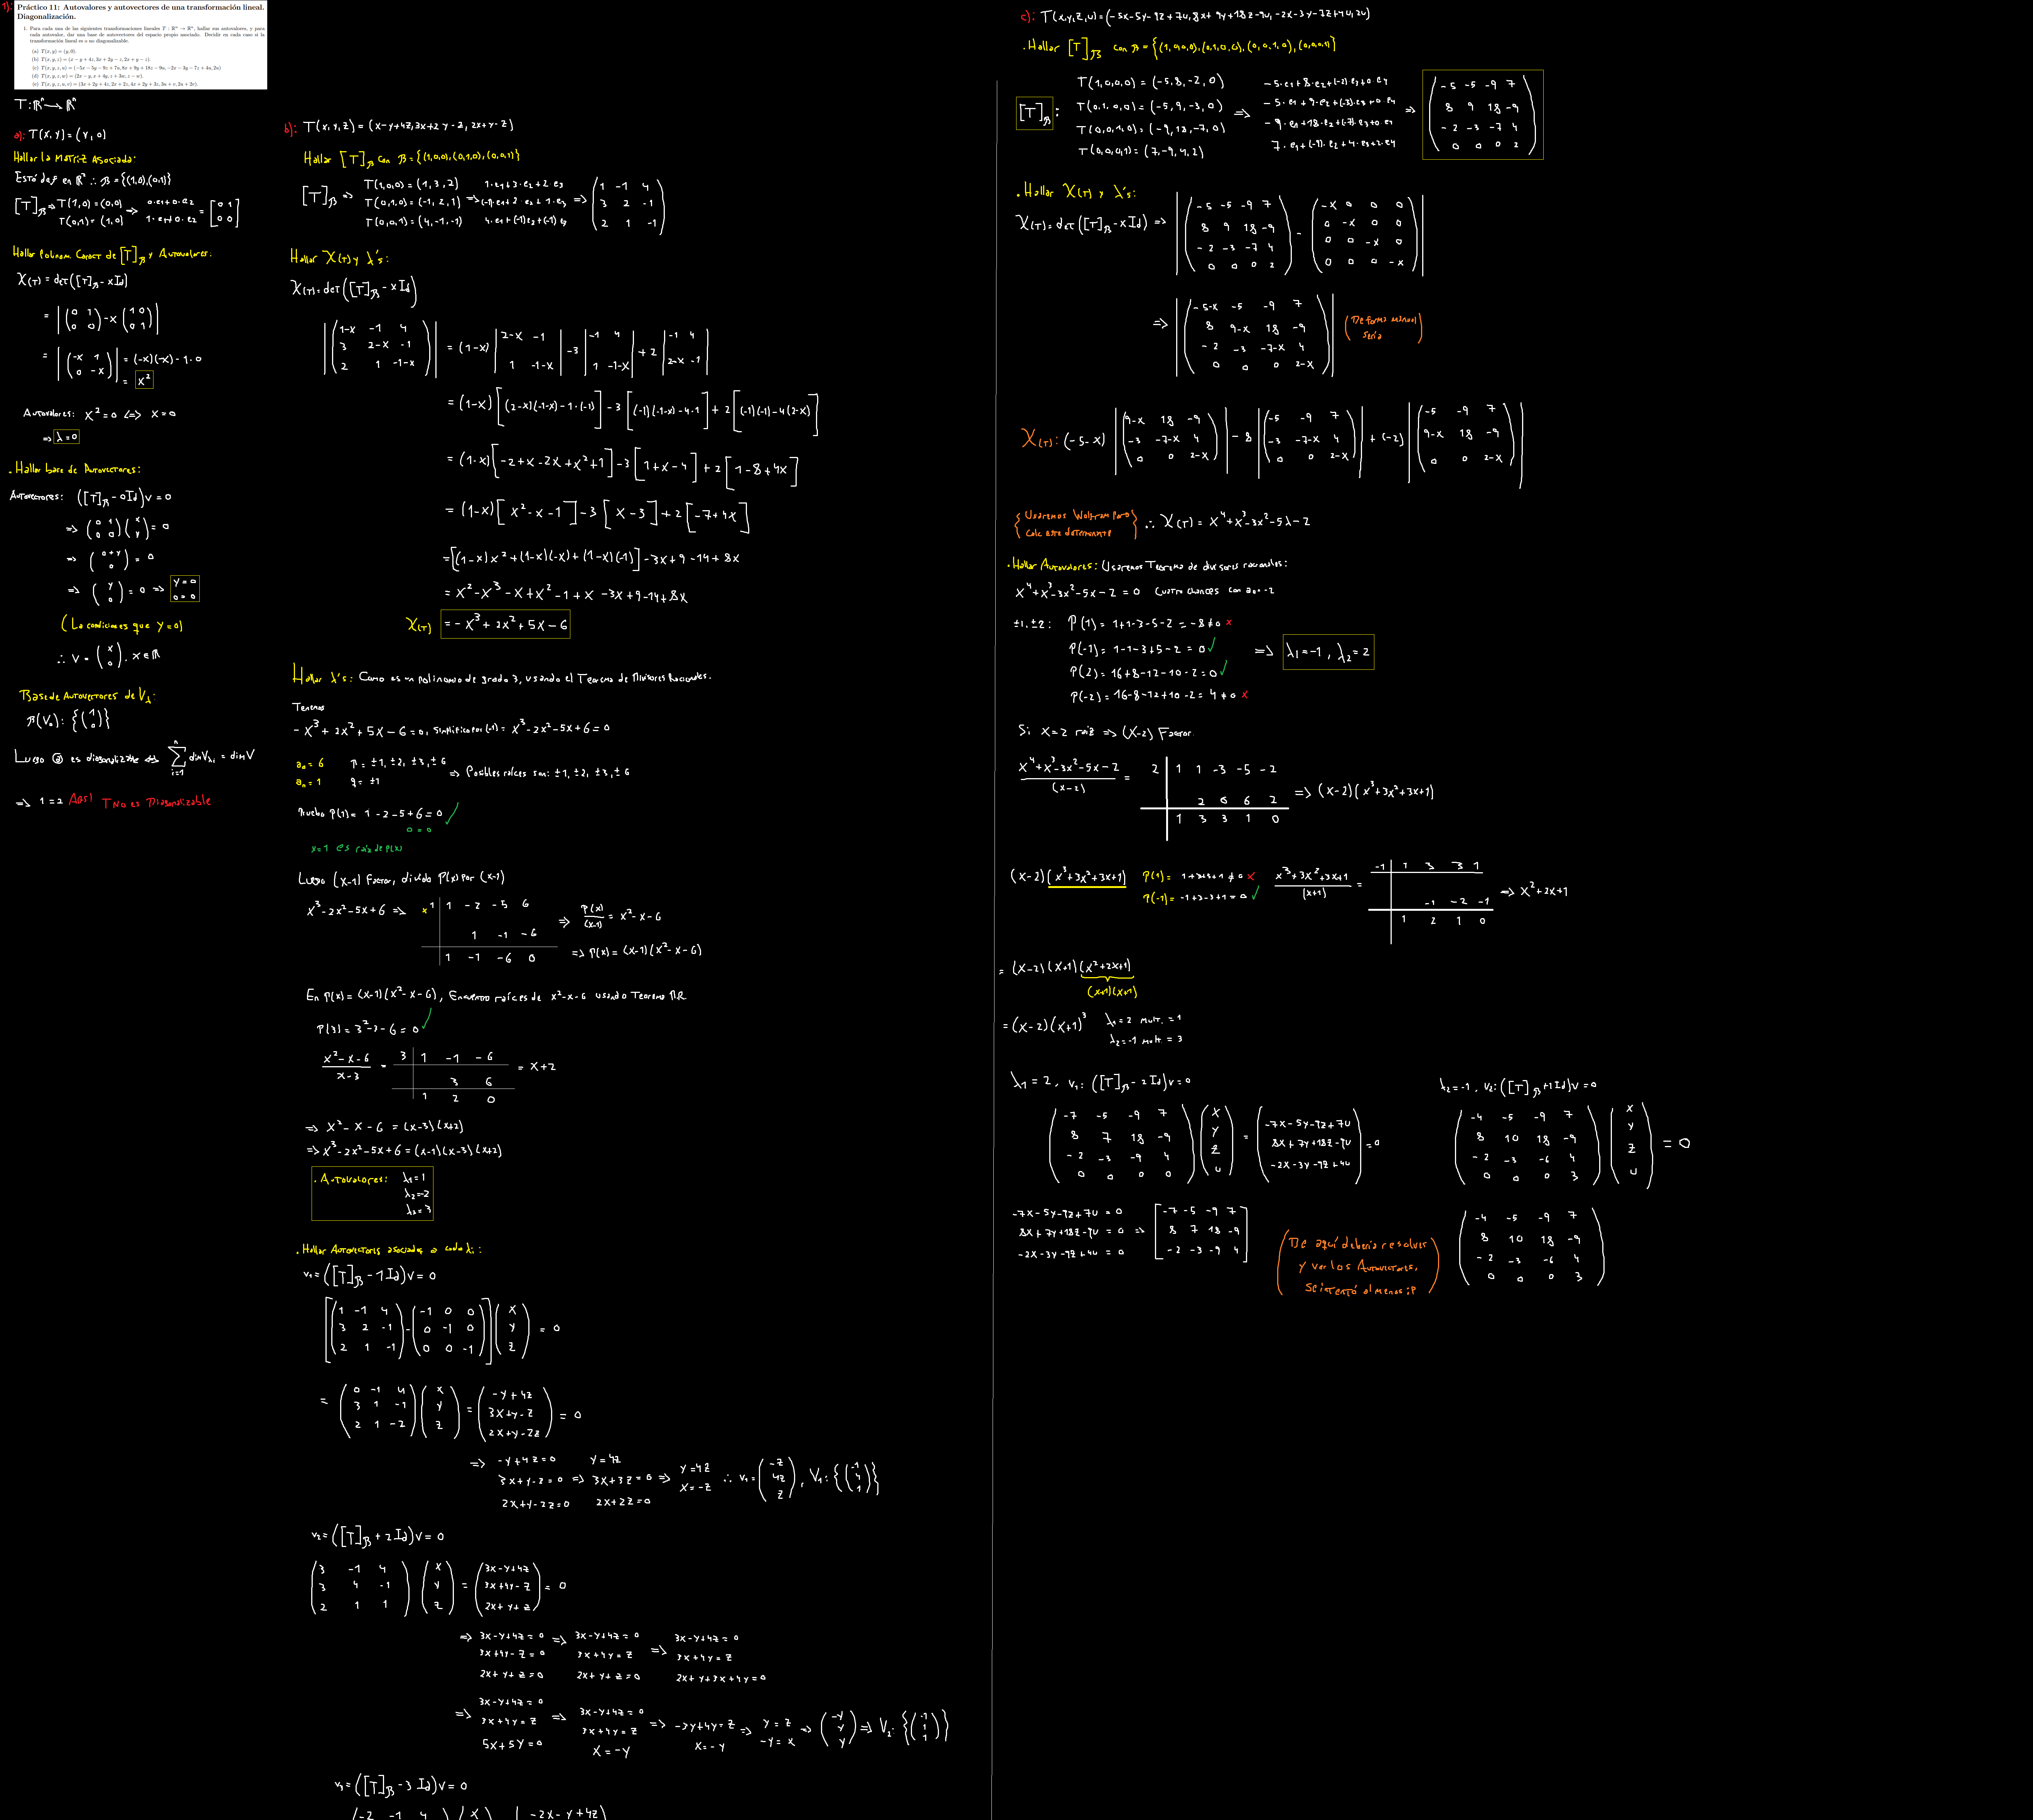 1):
Práctico 11: Autovalores y autovectores de una transformación lineal.
Diagonalización.
1. Para cada una de las siguientes transformaciones lineales T : ℝⁿ → ℝⁿ, hallar sus autovalores, y para
cada autovalor, dar una base de autovectores del espacio propio asociado. Decidir en cada caso si la
transformación lineal es o no diagonalizable.
(a) T(x, y) = (y, 0).
(b) T(x, y, z) = (x − y + 4z, 3x + 2y − z, 2x + y − z).
(c) T(x, y, z, u) = (−5x − 5y − 9z + 7u, 8x + 9y + 18z − 9u, −2x − 3y − 7z + 4u, 2u).
(d) T(x, y, z, w) = (2x − y, x + 4y, z + 3w, z − w).
(e) T(x, y, z, u, v) = (3x + 2y + 4z, 2x + 2z, 4x + 2y + 3z, 3u + v, 2u + 2v).
T: ℝⁿ → ℝⁿ
a): T(x, y) = (y, 0)
Hallar la matriz Asociada:
Está def en ℝ² ∴ B = {(1,0),(0,1)}
[T]_B ⇒ T(1,0) = (0,0) ⇒ 0·e1+0·e2 = [0 1
T(0,1) = (1,0) 1·e1+0·e2 0 0]
Hallar Polinom. Caract de [T]_B y Autovalores:
χ(T) = det([T]_B - xId)
= |(0 1 0 0) - x(1 0 0 1)|
= |(-x 1 0 -x)| = (-x)(-x) - 1·0
= x²
Autovalores: x² = 0 ⟺ x = 0
⇒ λ = 0
. Hallar base de Autovectores:
Autovectores: ([T]_B - 0Id)v = 0
⇒ (0 1 0 0)(x y) = 0
⇒ (0+y 0) = 0
⇒ (y 0) = 0 ⇒ y = 0
0 = 0
(La condición es que y=0)
∴ v = (x 0), x ∈ ℝ
Base de Autovectores de V_λ:
B(V₀): {(1 0)}
Luego @ es diagonalizable ⟺ Σ i=1 n dim V_λi = dim V
⇒ 1 = 2 Abs! T No es Diagonalizable
b): T(x, y, z) = (x-y+4z, 3x+2y-z, 2x+y-z)
Hallar [T]_B con B = {(1,0,0),(0,1,0),(0,0,1)}
[T]_B ⇒ T(1,0,0) = (1,3,2) 1·e1+3·e2+2·e3
T(0,1,0) = (-1,2,1) ⇒ (-1)·e1+2·e2+1·e3 ⇒ (1 -1 4
T(0,0,1) = (4,-1,-1) 4·e1+(-1)e2+(-1)e3 3 2 -1
2 1 -1)
Hallar χ(T) y λ's:
χ(T) = det([T]_B - xId)
|(1-x -1 4
3 2-x -1
2 1 -1-x)| = (1-x)|2-x -1 1 -1-x| - 3|-1 4 1 -1-x| + 2|-1 4 2-x -1|
= (1-x)[(2-x)(-1-x)-1·(-1)] - 3[(-1)(-1-x)-4·1] + 2[(-1)(-1)-4(2-x)]
= (1-x)[-2+x-2x+x²+1] - 3[1+x-4] + 2[1-8+4x]
= (1-x)[x²-x-1] - 3[x-3] + 2[-7+4x]
= [(1-x)x²+(1-x)(-x)+(1-x)(-1)] - 3x+9-14+8x
= x²-x³-x+x²-1+x-3x+9-14+8x
χ(T) = -x³+2x²+5x-6
Hallar λ's: Como es un polinomio de grado 3, usando el Teorema de Divisores Racionales.
Tenemos
-x³+2x²+5x-6 = 0, simplifico por (-1) = x³-2x²-5x+6 = 0
a₀ = 6 p = ±1, ±2, ±3, ±6
aₙ = 1 q = ±1 ⇒ Posibles raíces son: ±1, ±2, ±3, ±6
Pruebo P(1) = 1-2-5+6 = 0 ✓
0 = 0
x=1 es raíz de P(x)
Luego (x-1) Factor, divido P(x) por (x-1)
x³-2x²-5x+6 ⇒ 1 | 1 -2 -5 6
1 -1 -6
1 -1 -6 0
⇒ P(x)/(x-1) = x²-x-6
⇒ P(x) = (x-1)(x²-x-6)
En P(x) = (x-1)(x²-x-6), Encuentro raíces de x²-x-6 usando Teorema RR
P(3) = 3²-3-6 = 0 ✓
x²-x-6 / x-3 = 3 | 1 -1 -6
3 6
1 2 0 = x+2
⇒ x²-x-6 = (x-3)(x+2)
⇒ x³-2x²-5x+6 = (x-1)(x-3)(x+2)
. Autovalores: λ1=1
λ2=-2
λ3=3
. Hallar Autovectores asociados a cada λi:
v1 = ([T]_B - 1Id)v = 0
[(1 -1 4
3 2 -1
2 1 -1) - (-1 0 0
0 -1 0
0 0 -1)](x y z) = 0
= (0 -1 4
3 1 -1
2 1 -2)(x y z) = (-y+4z
3x+y-z
2x+y-2z) = 0
⇒ -y+4z=0 y=4z
3x+y-z=0 ⇒ 3x+3z=0 ⇒ y=4z x=-z ∴ v1 = (-z 4z z), V1: {(-1 4 1)}
2x+y-2z=0 2x+2z=0
v2 = ([T]_B + 2Id)v = 0
(3 -1 4
3 4 -1
2 1 1)(x y z) = (3x-y+4z
3x+4y-z
2x+y+z) = 0
⇒ 3x-y+4z=0 ⇒ 3x-y+4z=0 ⇒ 3x-y+4z=0
3x+4y-z=0 3x+4y=z 3x+4y=z
2x+y+z=0 2x+y+z=0 2x+y+3x+4y=0
⇒ 3x-y+4z=0 ⇒ 3x-y+4z=0
3x+4y=z 3x+4y=z ⇒ -3y+4y=z ⇒ y=z ⇒ (-y y y) ⇒ V2: {(-1 1 1)}
5x+5y=0 x=-y x=-y -y=x
v3 = ([T]_B - 3Id)v = 0
(-2 -1 4 (x (-2x-y+4z)
c): T(x,y,z,u) = (-5x-5y-9z+7u, 8x+9y+18z-9u, -2x-3y-7z+4u, 2u)
. Hallar [T]_B con B = {(1,0,0,0),(0,1,0,0),(0,0,1,0),(0,0,0,1)}
[T]_B :
T(1,0,0,0) = (-5,8,-2,0) -5·e1+8·e2+(-2)e3+0·e4
T(0,1,0,0) = (-5,9,-3,0) ⇒ -5·e1+9·e2+(-3)·e3+0·e4
T(0,0,1,0) = (-9,18,-7,0) -9·e1+18·e2+(-7)·e3+0·e4
T(0,0,0,1) = (7,-9,4,2) 7·e1+(-9)·e2+4·e3+2·e4
⇒ (-5 -5 -9 7
8 9 18 -9
-2 -3 -7 4
0 0 0 2)
. Hallar χ(T) y λ's:
χ(T) = det([T]_B - xId) ⇒ |(-5 -5 -9 7
8 9 18 -9
-2 -3 -7 4
0 0 0 2) - (-x 0 0 0
0 -x 0 0
0 0 -x 0
0 0 0 -x)|
⇒ |(-5-x -5 -9 7
8 9-x 18 -9
-2 -3 -7-x 4
0 0 0 2-x)|
(De forma manual
sería)
χ(T): (-5-x)|(9-x 18 -9
-3 -7-x 4
0 0 2-x)| - 8|(-5 -9 7
-3 -7-x 4
0 0 2-x)| + (-2)|(-5 -9 7
9-x 18 -9
0 0 2-x)|
{Usaremos Wolfram para
calc este determinante} ∴ χ(T) = x⁴+x³-3x²-5λ-2
. Hallar Autovalores: Usaremos Teorema de divisores racionales:
x⁴+x³-3x²-5x-2 = 0 Cuatro chances con a₀=-2
±1, ±2: P(1) = 1+1-3-5-2 = -8 ≠ 0 x
P(-1) = 1-1-3+5-2 = 0 ✓
P(2) = 16+8-12-10-2 = 0 ✓
P(-2) = 16-8-12+10-2 = 4 ≠ 0 x
⇒ λ1=-1, λ2=2
Si x=2 raíz ⇒ (x-2) Factor.
x⁴+x³-3x²-5x-2 / (x-2) = 2 | 1 1 -3 -5 -2
2 6 6 2
1 3 3 1 0
⇒ (x-2)(x³+3x²+3x+1)
(x-2)(x³+3x²+3x+1) P(1) = 1+3+3+1 ≠ 0 x
P(-1) = -1+3-3+1 = 0 ✓
x³+3x²+3x+1 / (x+1) = -1 | 1 3 3 1
-1 -2 -1
1 2 1 0
⇒ x²+2x+1
= (x-2)(x+1)(x²+2x+1)
(x+1)(x+1)
= (x-2)(x+1)³ λ1=2 mult.=1
λ2=-1 mult.=3
λ1=2, v1: ([T]_B - 2Id)v=0
(-7 -5 -9 7
8 7 18 -9
-2 -3 -9 4
0 0 0 0)(x y z u) = (-7x-5y-9z+7u
8x+7y+18z-9u
-2x-3y-9z+4u) = 0
-7x-5y-9z+7u=0
8x+7y+18z-9u=0 ⇒ [-7 -5 -9 7
-2x-3y-9z+4u=0 8 7 18 -9
-2 -3 -9 4]
(De aquí debería resolver
y ver los Autovectores,
Se intentó al menos :P)
λ2=-1, v2: ([T]_B+1Id)v=0
(-4 -5 -9 7
8 10 18 -9
-2 -3 -6 4
0 0 0 3)(x y z u) = 0
(-4 -5 -9 7
8 10 18 -9
-2 -3 -6 4
0 0 0 3)